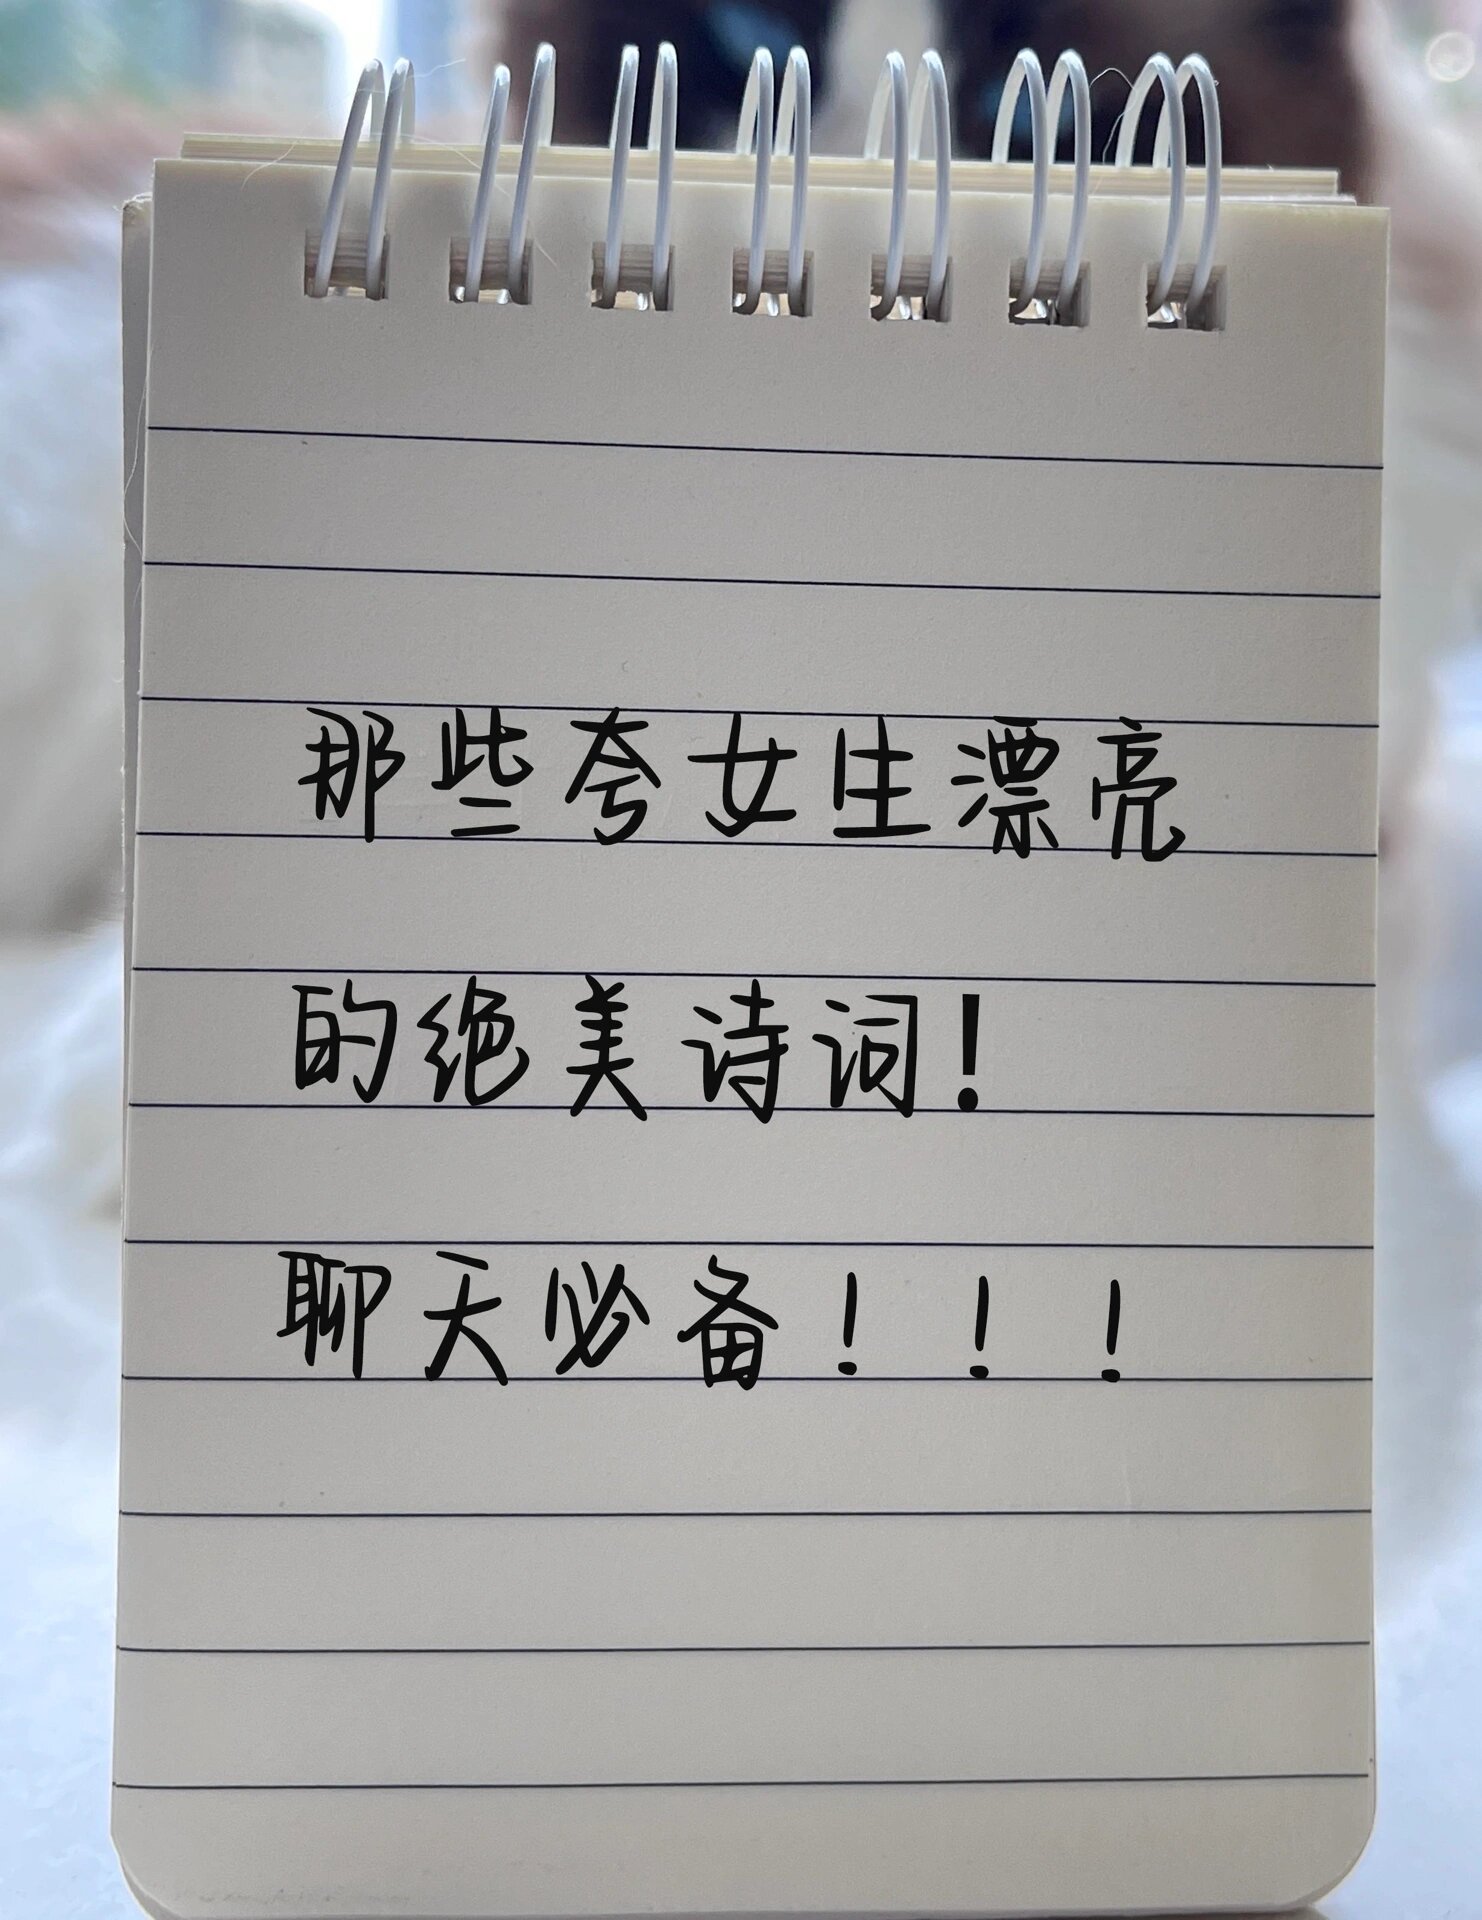 那些夸女生漂亮
的绝美诗词!
聊天必备！！！